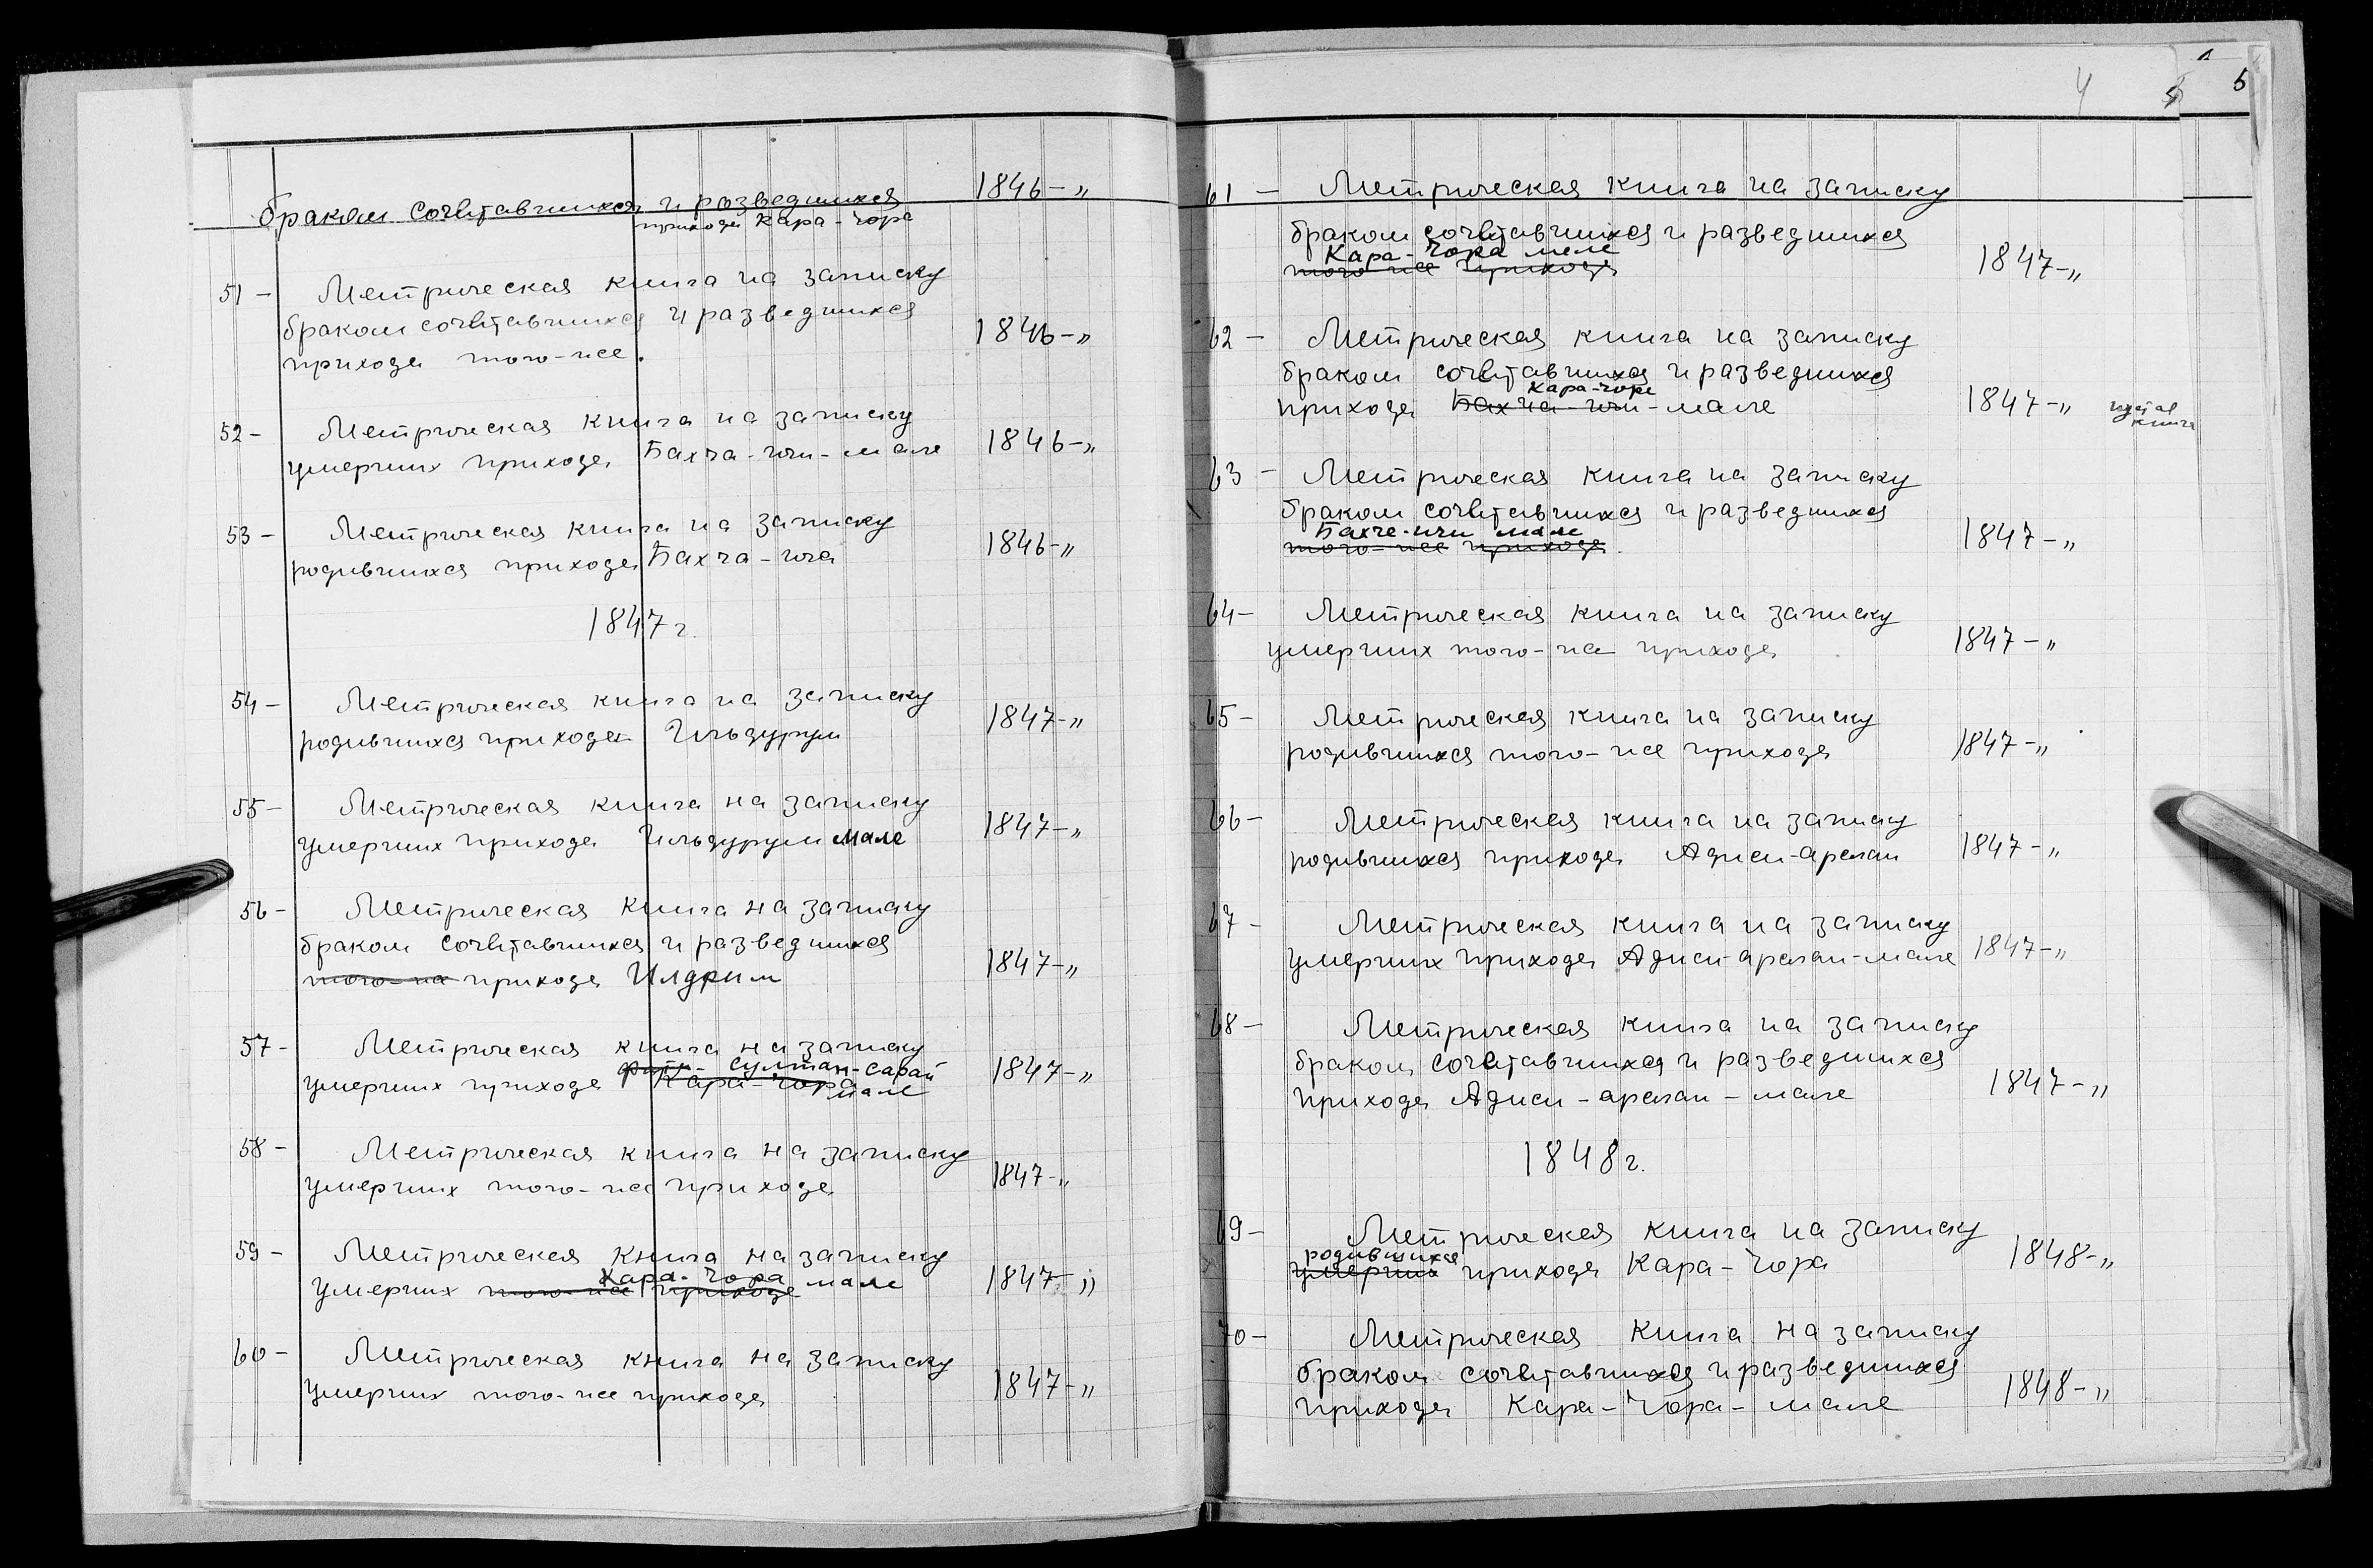 браком сочетавшихся и разведшихся 1846-"
прихода Кара-Чора
51- Метрическая книга на записку
браком сочетавшихся и разведшихся 1846-"
прихода того-же.
52- Метрическая книга на записку
умерших прихода Бахча-ичи-мале 1846-"
53- Метрическая книга на записку
родившихся прихода Бахча-ича 1846-"
1847 г.
54- Метрическая книга на записку
родившихся прихода Ильдурум 1847-"
55- Метрическая книга на записку
умерших прихода Ильдурум мале 1847-"
56- Метрическая книга на записку
браком сочетавшихся и разведшихся
того-же прихода Илдрим 1847-"
57- Метрическая книга на записку
Султан-сарай
умерших прихода Кара-Чора мале 1847-"
58- Метрическая книга на записку
умерших того-же прихода 1847-"
59- Метрическая книга на записку
Кара-Чора мале
умерших того-же прихода 1847-"
60- Метрическая книга на записку
умерших того-же прихода 1847-"
4 5 5
61- Метрическая книга на записку
браком сочетавшихся и разведшихся
Кара-Чора мале
того-же прихода 1847-"
62- Метрическая книга на записку
браком сочетавшихся и разведшихся
Кара-чоре
прихода Бахча-ичи-мале 1847-"
книга
63- Метрическая книга на записку
браком сочетавшихся и разведшихся
Бахче-ичи мале
того-же прихода. 1847-"
64- Метрическая книга на записку
умерших того-же прихода 1847-"
65- Метрическая книга на записку
родившихся того-же прихода 1847-"
66- Метрическая книга на записку
родившихся прихода Аджи-арслан 1847-"
67- Метрическая книга на записку
умерших прихода Аджи-арслан-мале 1847-"
68- Метрическая книга на записку
браком сочетавшихся и разведшихся
прихода Аджи-арслан-мале 1847-"
1848 г.
69- Метрическая книга на записку
родившихся
умерших прихода Кара-Чора 1848-"
70- Метрическая книга на записку
браком сочетавшихся и разведшихся
прихода Кара-Чора-мале 1848-"